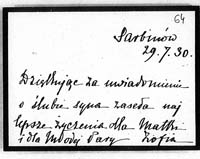 64
Sarbinów
29.7.30.
Dziękując za uwiadomienie
o ślubie syna zaseła naj
lepsze życzenia dla Matki
i dla Młodej Pary Zofia